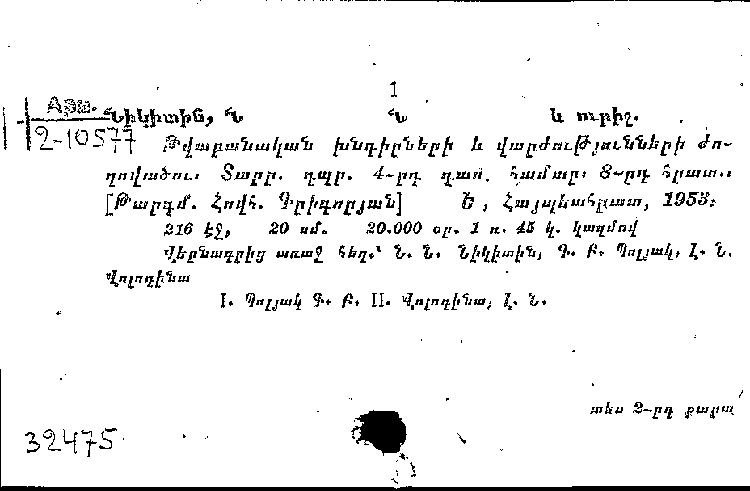 1
Арм.
2-10577
Նիկիտին, Ն Ն և ուրիշ.
Թվաբանական խնդիրների և վարժությունների ժո-
ղովածու։ Տարր. դպր. 4-րդ դաս. համար։ 8-րդ հրատ.։
[Թարգմ. Հովհ. Գրիգորյան] Ե, Հայպետհրատ, 1953։
216 էջ, 20 սմ. 20.000 օր. 1 ռ. 45 կ. կազմով
Վերնագրից առաջ հեղ.՝ Ն. Ն. Նիկիտին, Գ. Բ. Պոլյակ, Լ. Ն.
Վոլոդինա
I. Պոլյակ Գ. Բ. II. Վոլոդինա, Լ. Ն.
տես 2-րդ քարտ
32475